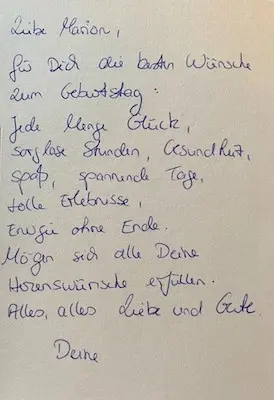 Liebe Marion,
für Dich die besten Wünsche
zum Geburtstag:
Jede Menge Glück,
sorglose Stunden, Gesundheit,
Spaß, spannende Tage,
tolle Erlebnisse,
Energie ohne Ende.
Mögen sich alle Deine
Herzenswünsche erfüllen.
Alles, alles Liebe und Gute.
Deine